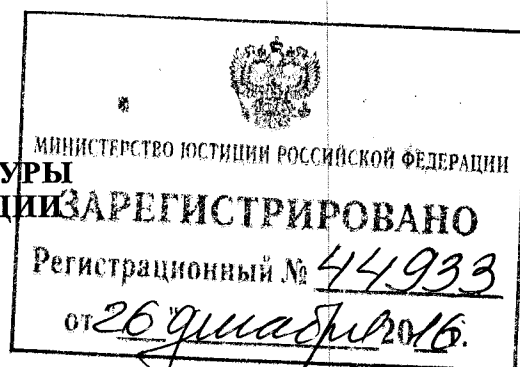 МИНИСТЕРСТВО ЮСТИЦИИ РОССИЙСКОЙ ФЕДЕРАЦИИ
УРЫ
ЦИИ ЗАРЕГИСТРИРОВАНО
Регистрационный № 44933
от "26" декабря 2016.